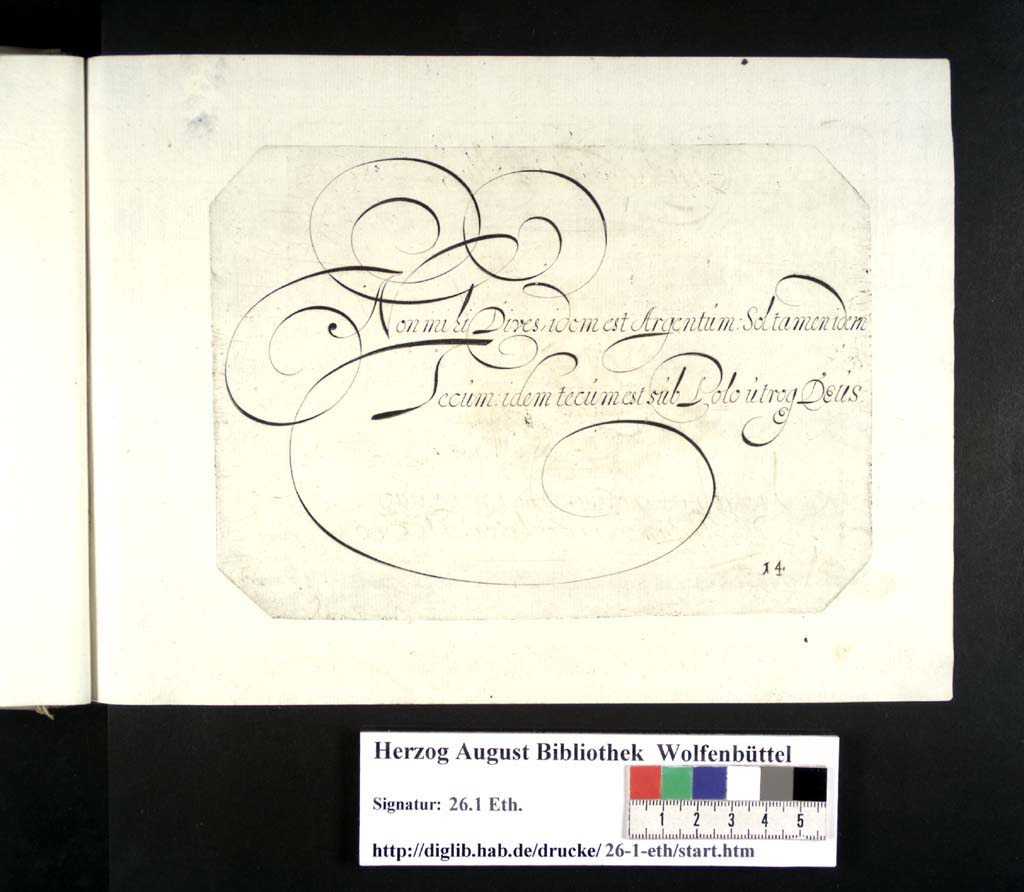 Non mihi Dives, idem est Argentúm: Sol tamen idem
Tecúm: idem tecúm est súb Polo útroq Deús.
14
Herzog August Bibliothek Wolfenbüttel
Signatur: 26.1 Eth.
1 2 3 4 5
http://diglib.hab.de/drucke/26-1-eth/start.htm